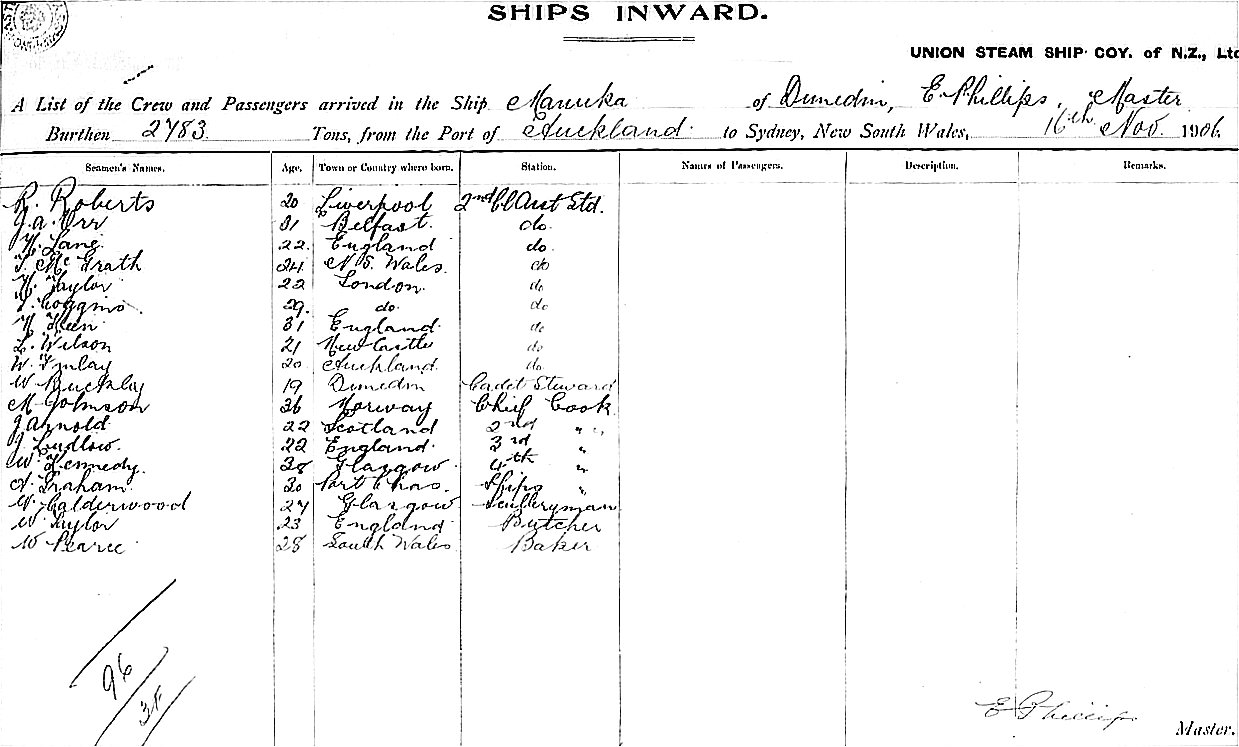 SHIPS INWARD.
UNION STEAM SHIP COY. of N.Z., Ltd
A List of the Crew and Passengers arrived in the Ship Manuka of Dunedin, E Phillips, Master
Burthen 2783 Tons, from the Port of Auckland to Sydney, New South Wales, 16th Nov. 1906.
Seamen's Names. Age. Town or Country where born. Station. Names of Passengers. Description. Remarks.
R. Roberts 20 Liverpool 2nd Cl Asst Std.
J. A. Orr 31 Belfast. do.
H. Lane 22. England do.
T. McGrath 24 N S. Wales. do
H. Taylor 22 London. do
29. do. do
H. Keen 31 England do
L. Wilson 21 New Castle do
W. Finlay 20 Auckland do.
W Buckley 19 Dunedin Cadet Steward
M Johnson 36 Norway Chief Cook
J Arnold 22 Scotland 2nd " "
J Ludlow. 22 England 3rd "
W. Kennedy. 38 Glasgow 4th "
A. Graham 30 Port Chas. Ships "
W. Calderwood 27 Glasgow Sculleryman
W Taylor 23 England Butcher
W Pearce 28 South Wales Baker
96
E Phillips
Master.